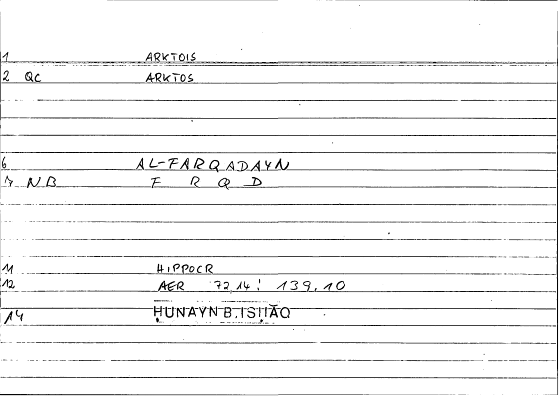 1 ARKTOIS
2 QC ARKTOS
6 AL-FARQADAYN
7 NB F R Q D
11 HIPPOCR
12 AER 72.14! 139.10
14 ḤUNAYN B. ISḤĀQ